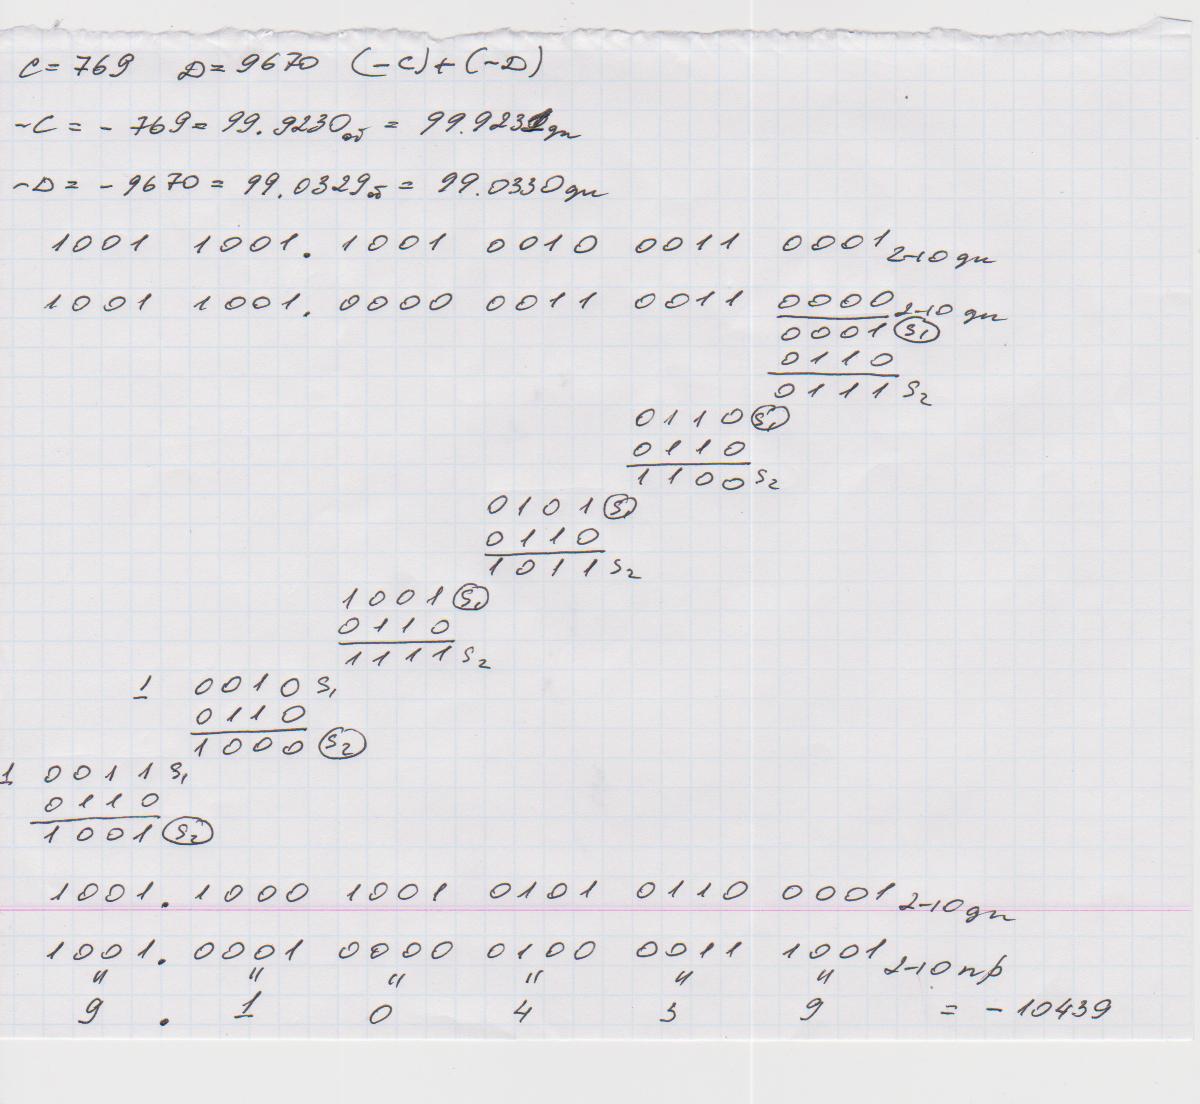 C = 769 D = 9670 (-C)+(-D)
-C = - 769 = 99.9230об = 99.9231дп
-D = - 9670 = 99.0329об = 99.0330дп
1001 1001. 1001 0010 0011 0001 2-10 дп
1001 1001. 0000 0011 0011 0000 2-10 дп
0001 S1
0110
0111 S2
0110 S1
0110
1100 S2
0101 S1
0110
1011 S2
1001 S1
0110
1111 S2
1 0010 S1
0110
1000 S2
1 0011 S1
0110
1001 S2
1001. 1000 1001 0101 0110 0001 2-10 дп
1001. 0001 0000 0100 0011 1001 2-10 пр
" " " " " "
9 . 1 0 4 3 9 = - 10439